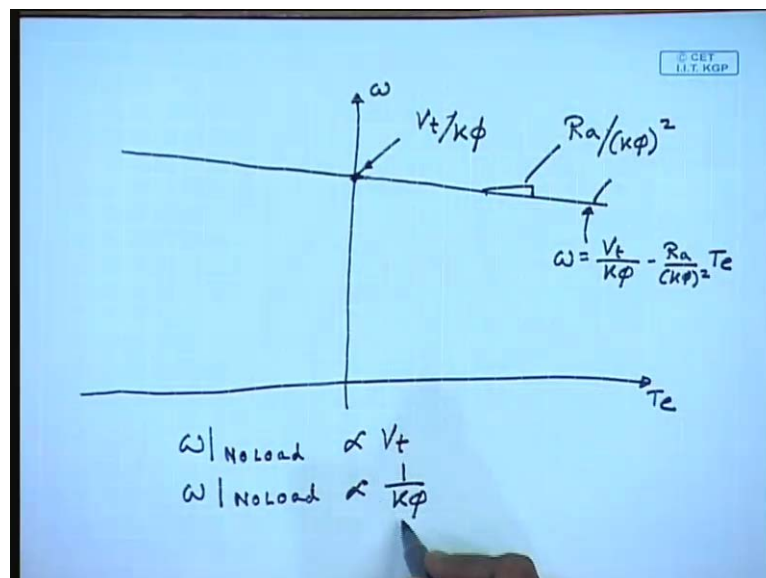 © CET
I.I.T. KGP
ω
Vt/Kφ
Ra/(Kφ)²
ω = Vt/Kφ - Ra/(Kφ)² Te
Te
ω | NO LOAD ∝ Vt
ω | NO LOAD ∝ 1/Kφ